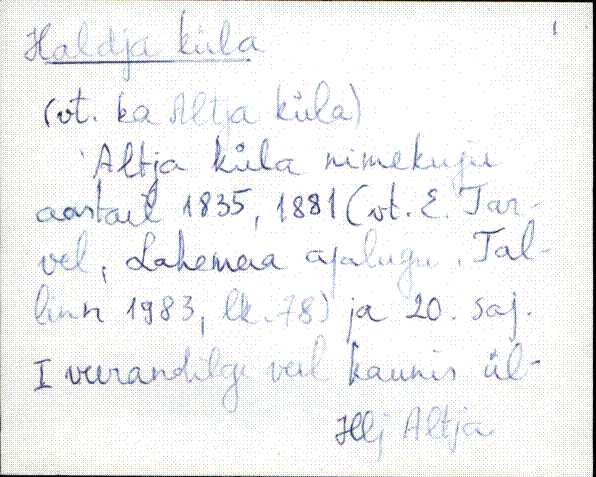 Haldja küla
1
(vt. ka Altja küla)
Altja küla nimekuju
aastail 1835, 1881 (vt. E. Tar-
vel, Lahemaa ajalugu. Tal-
linn 1983, lk. 78) ja 20. saj.
I veerandilgi veel kaunis ül-
Hlj Altja